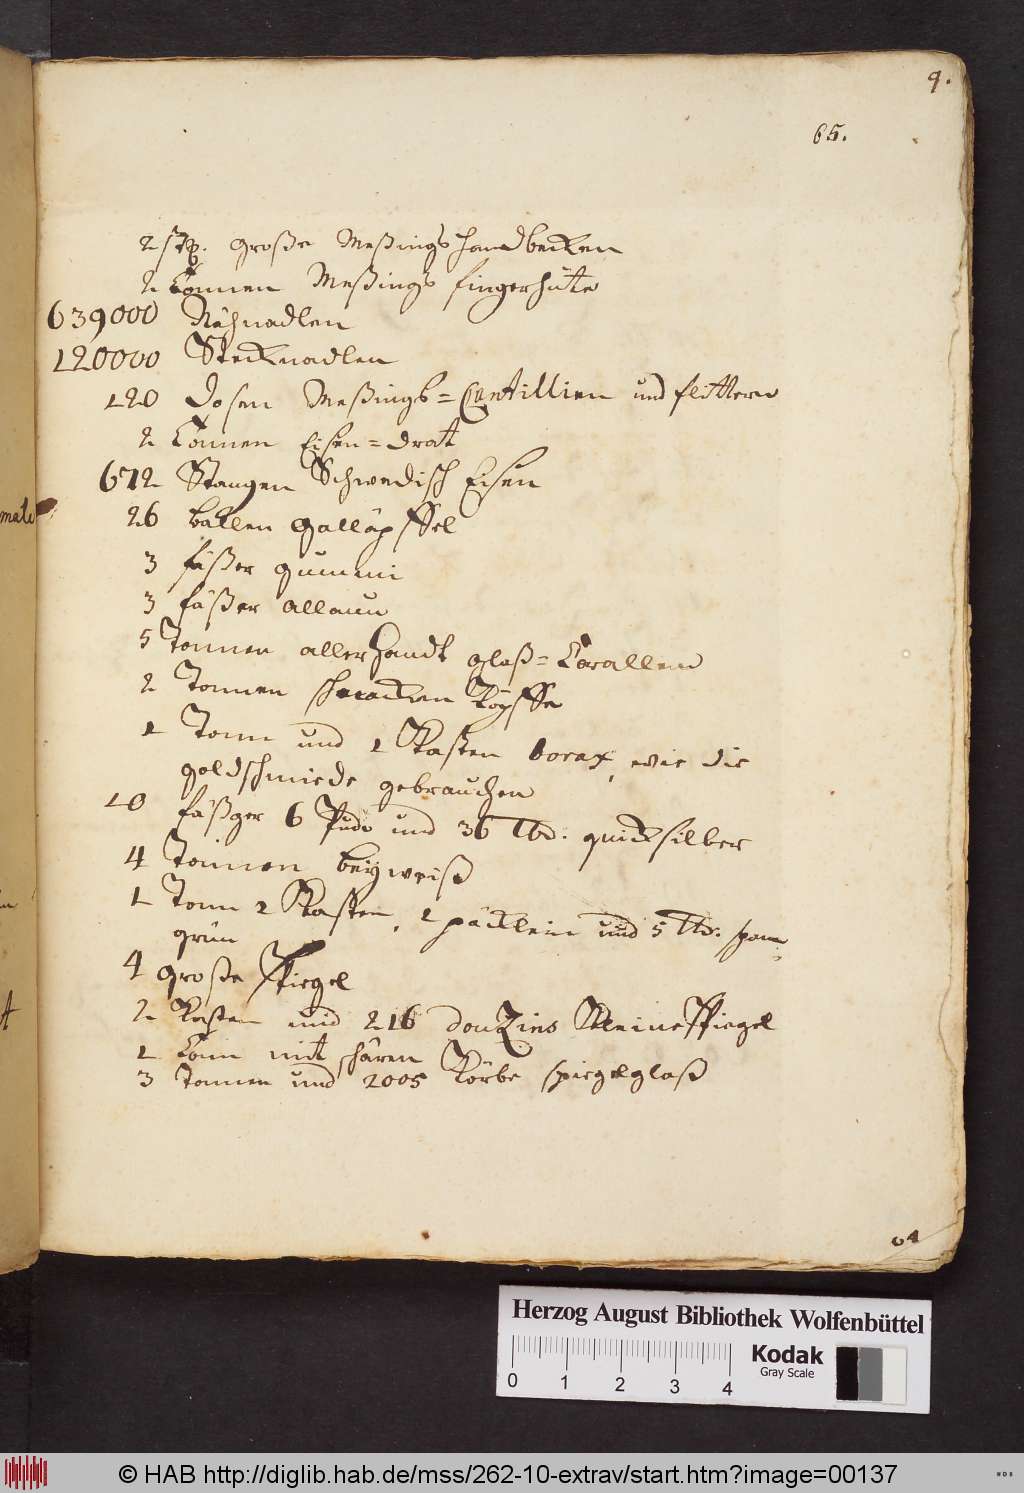 9.
65.
2 stk. große Meßings handbecken
2 Tonnen Meßings fingerhüte
639000 Nähnadlen
120000 Stecknadlen
120 Dosen Meßings=Cantillien und flittern
2 Tonnen Eisen=drat
672 Stangen Schwedisch Eisen
26 ballen Galläpffel
3 fäßer gummi
3 fäßer allaun
5 Tonnen allerhandt glaß=Corallen
2 Tonnen Köpffe
1 Tonn und 1 Kasten borax, wie die
goldschmiede gebrauchen
10 fäßger 6 Pude und 36 lb. quicksilber
4 Tonnen bleyweiß
1 Tonn 2 Kasten, 2 päcklein und 5 lb. span
grün
4 große Spiegel
2 Kasten und 216 douZins Kleine Spiegel
1 Tonn mit schären
3 Tonnen und 2005 Körbe spiegelglaß
mate
Herzog August Bibliothek Wolfenbüttel
Kodak
Gray Scale
0 1 2 3 4
© HAB http://diglib.hab.de/mss/262-10-extrav/start.htm?image=00137